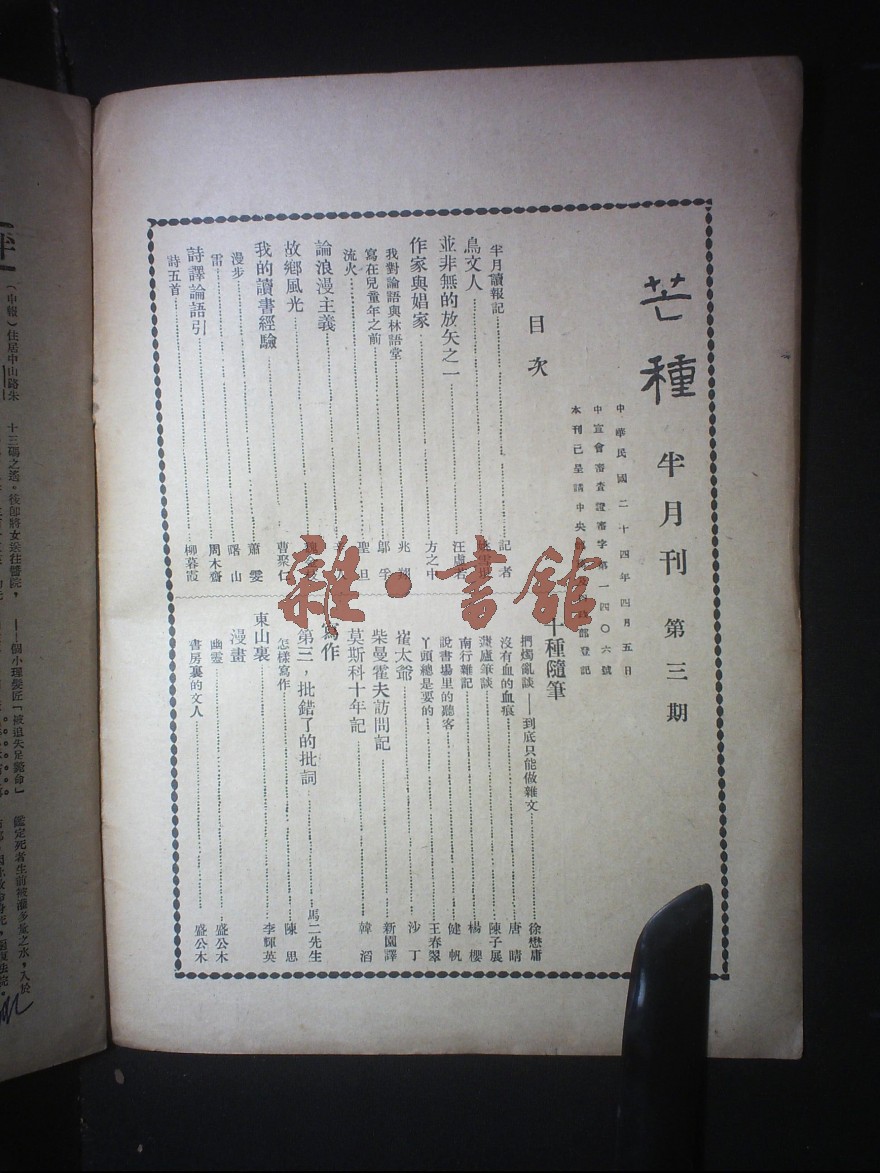 芒種 半月刊 第三期
中華民國二十四年四月五日
中宣會審查證審字第一四〇六號
本刊已呈請中央
部登記
目次
半月讀報記 記者
鳥文人
並非無的放矢之一 汪虛若
作家與娼家 方之中
我對論語與林語堂 兆翔
寫在兒童年之前
流火 聖旦
論浪漫主義
故鄉風光 曹聚仁
我的讀書經驗 蕭雯
漫步 曙山
雷 周木齋
詩譯論語引 柳暮霞
詩五首
十種隨筆
捫燭亂談——到底只能做雜文 徐懋庸
沒有血的血痕 唐晴
蘧廬筆談 陳子展
南行雜記 楊櫻
說書場里的聽客 健帆
丫頭總是要的 王春翠
崔太爺 沙丁
柴曼霍夫訪問記 新園譯
莫斯科十年記 韓滔
寫作
第三，批錯了的批詞 馬二先生
怎樣寫作 陳思
東山裏 李輝英
漫畫
幽靈 盛公木
書房裏的文人 盛公木
雜·書館
評
（申報）住居中山路朱
十三碼之遙。後即將女送往醫院，
——個小理髮匠「被迫失足斃命」
鑑定死者生前被灌多量之水，入於